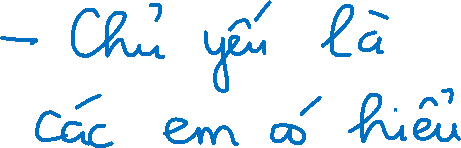 - Chủ yếu là
các em có hiểu